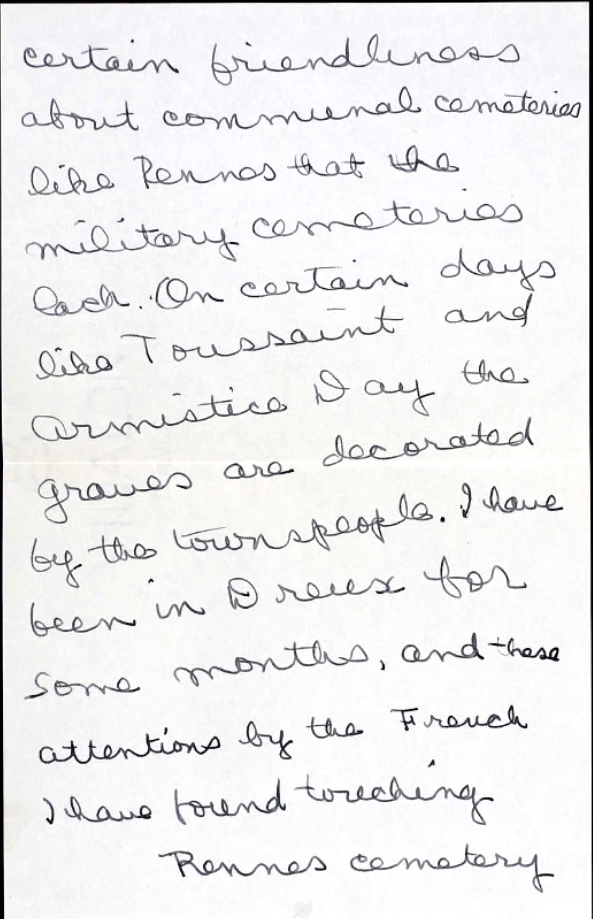 certain friendliness
about communal cemeteries
like Rennes that the
military cemeteries
lack. On certain days
like Toussaint and
Armistice Day the
graves are decorated
by the townspeople. I have
been in Dreux for
some months, and these
attentions by the French
I have found touching
Rennes cemetery